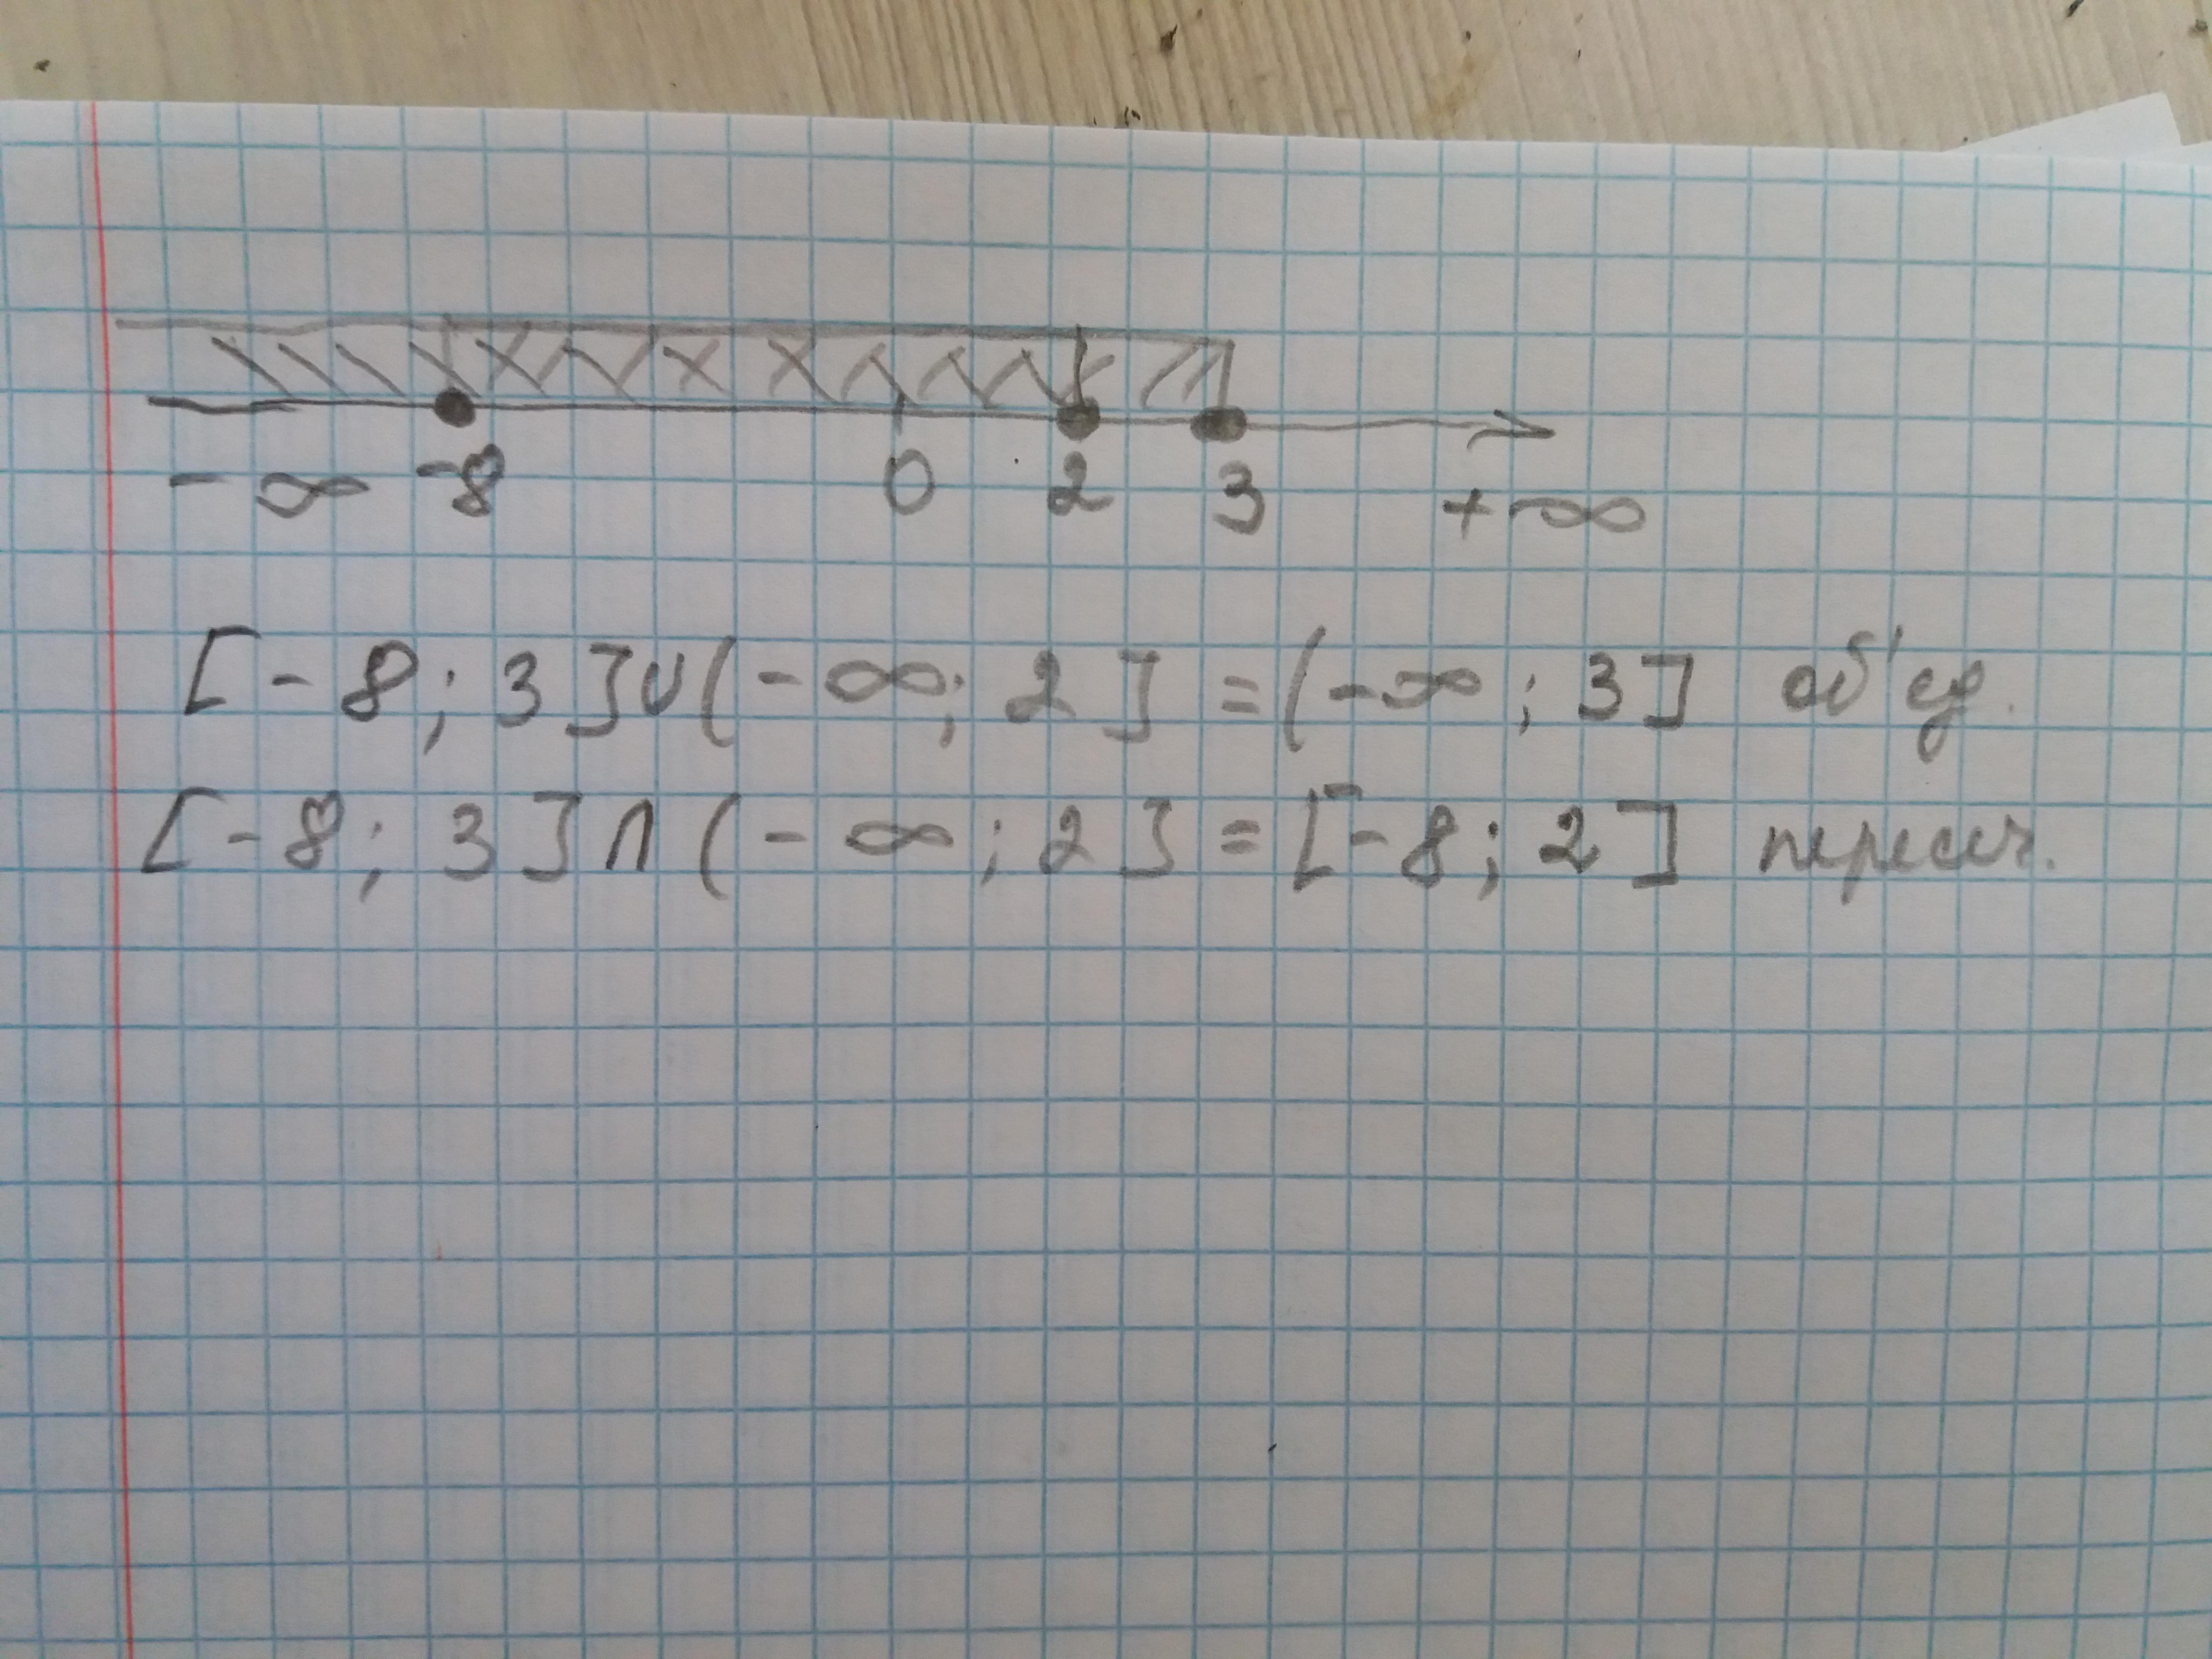 -∞ -8 0 2 3 +∞
[-8; 3]∪(-∞; 2] = (-∞; 3] об'ед.
[-8; 3]∩(-∞; 2] = [-8; 2] пересеч.